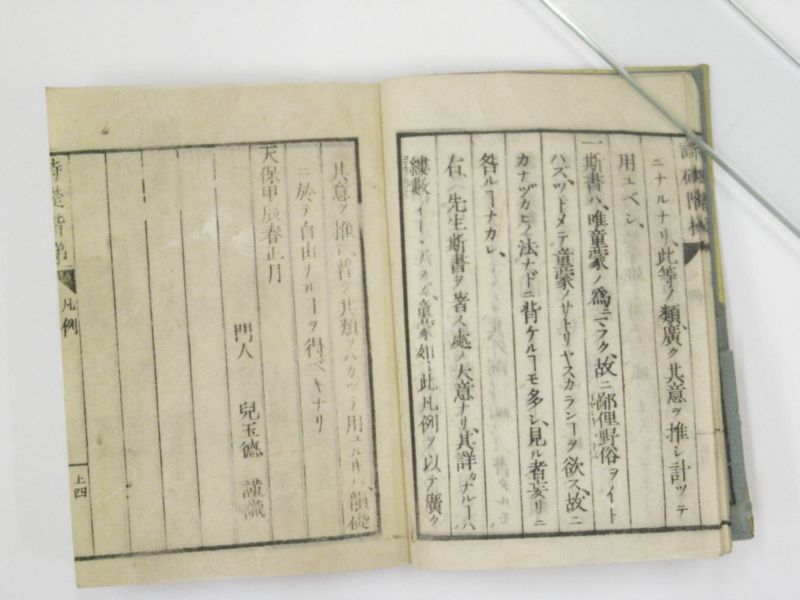 ニナルナリ、此等ノ類、廣ク其意ヲ推シ計ツテ
用ユベシ、
一斯書ハ、唯童蒙ノ爲ニ フク、故ニ鄙俚野俗ヲイト
ハズ、ツトメテ童蒙ノサトリヤスカランヿヲ欲ス、故ニ
カナヅカヒノ法ナドニ背ケルヿモ多シ、見ル者妄リニ
咎ルヿナカレ、
右、先生斯書ヲ著ス處ノ大意ナリ、其詳カナルヿハ
縷數 童蒙如此凡例ヲ以テ廣ク
其意ヲ推シ、普ク其類ヲハカツテ用ユル 韻礎
ニ於テ自由ナルヿヲ得ベキナリ
天保甲辰春正月
門人 兒玉德 謹識
凡例
上四